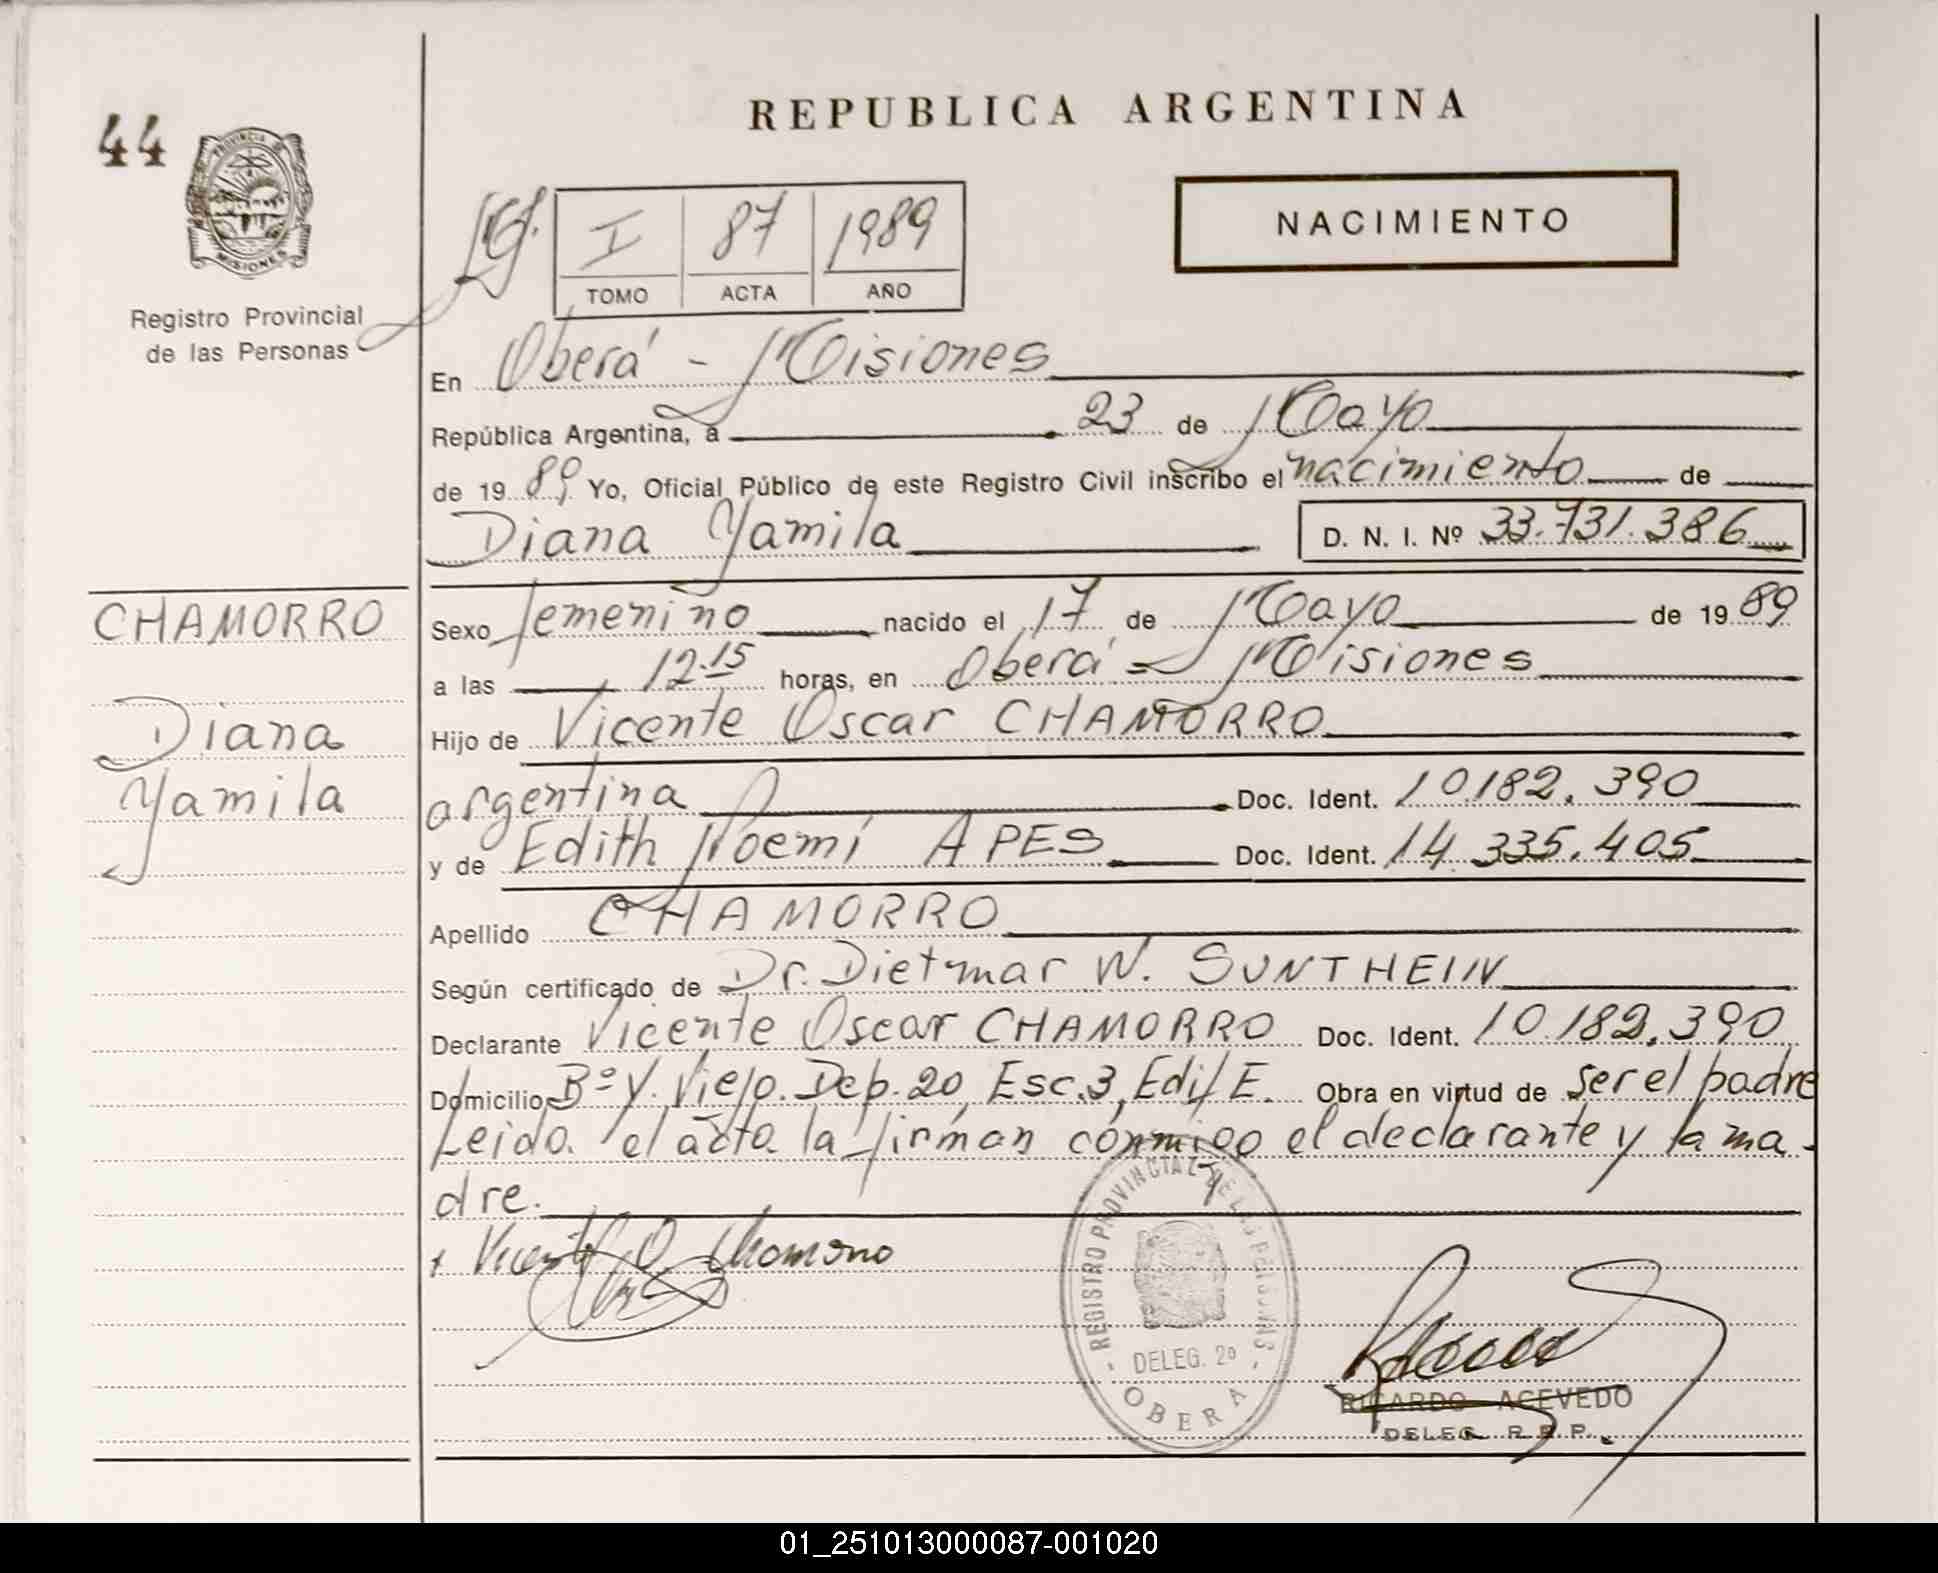 REPUBLICA ARGENTINA
44
PROVINCIA DE
MISIONES
Registro Provincial
de las Personas
NACIMIENTO
I 87 1989
TOMO ACTA AÑO
En Oberá - Misiones
República Argentina, a 23 de Mayo
de 1989 Yo, Oficial Público de este Registro Civil inscribo el nacimiento de
Diana Yamila D. N. I. Nº 33.731.386
CHAMORRO
Diana
Yamila
Sexo femenino nacido el 17 de Mayo de 1989
a las 12.15 horas, en Oberá - Misiones
Hijo de Vicente Oscar CHAMORRO
argentina Doc. Ident. 10.182.390
y de Edith Noemí APES Doc. Ident. 14.335.405
Apellido CHAMORRO
Según certificado de Dr. Dietmar W. SUNTHEIN
Declarante Vicente Oscar CHAMORRO Doc. Ident. 10.182.390
Domicilio Bº V. Viejo. Dep. 20, Esc. 3, Edif E. Obra en virtud de ser el padre
Leida el acta la firman conmigo el declarante y la ma-
dre.
Vicente O Chamorro
REGISTRO PROVINCIAL DE LAS PERSONAS
- DELEG. 2º -
OBERA
RICARDO ACEVEDO
DELEG. R. P. P.
01_251013000087-001020